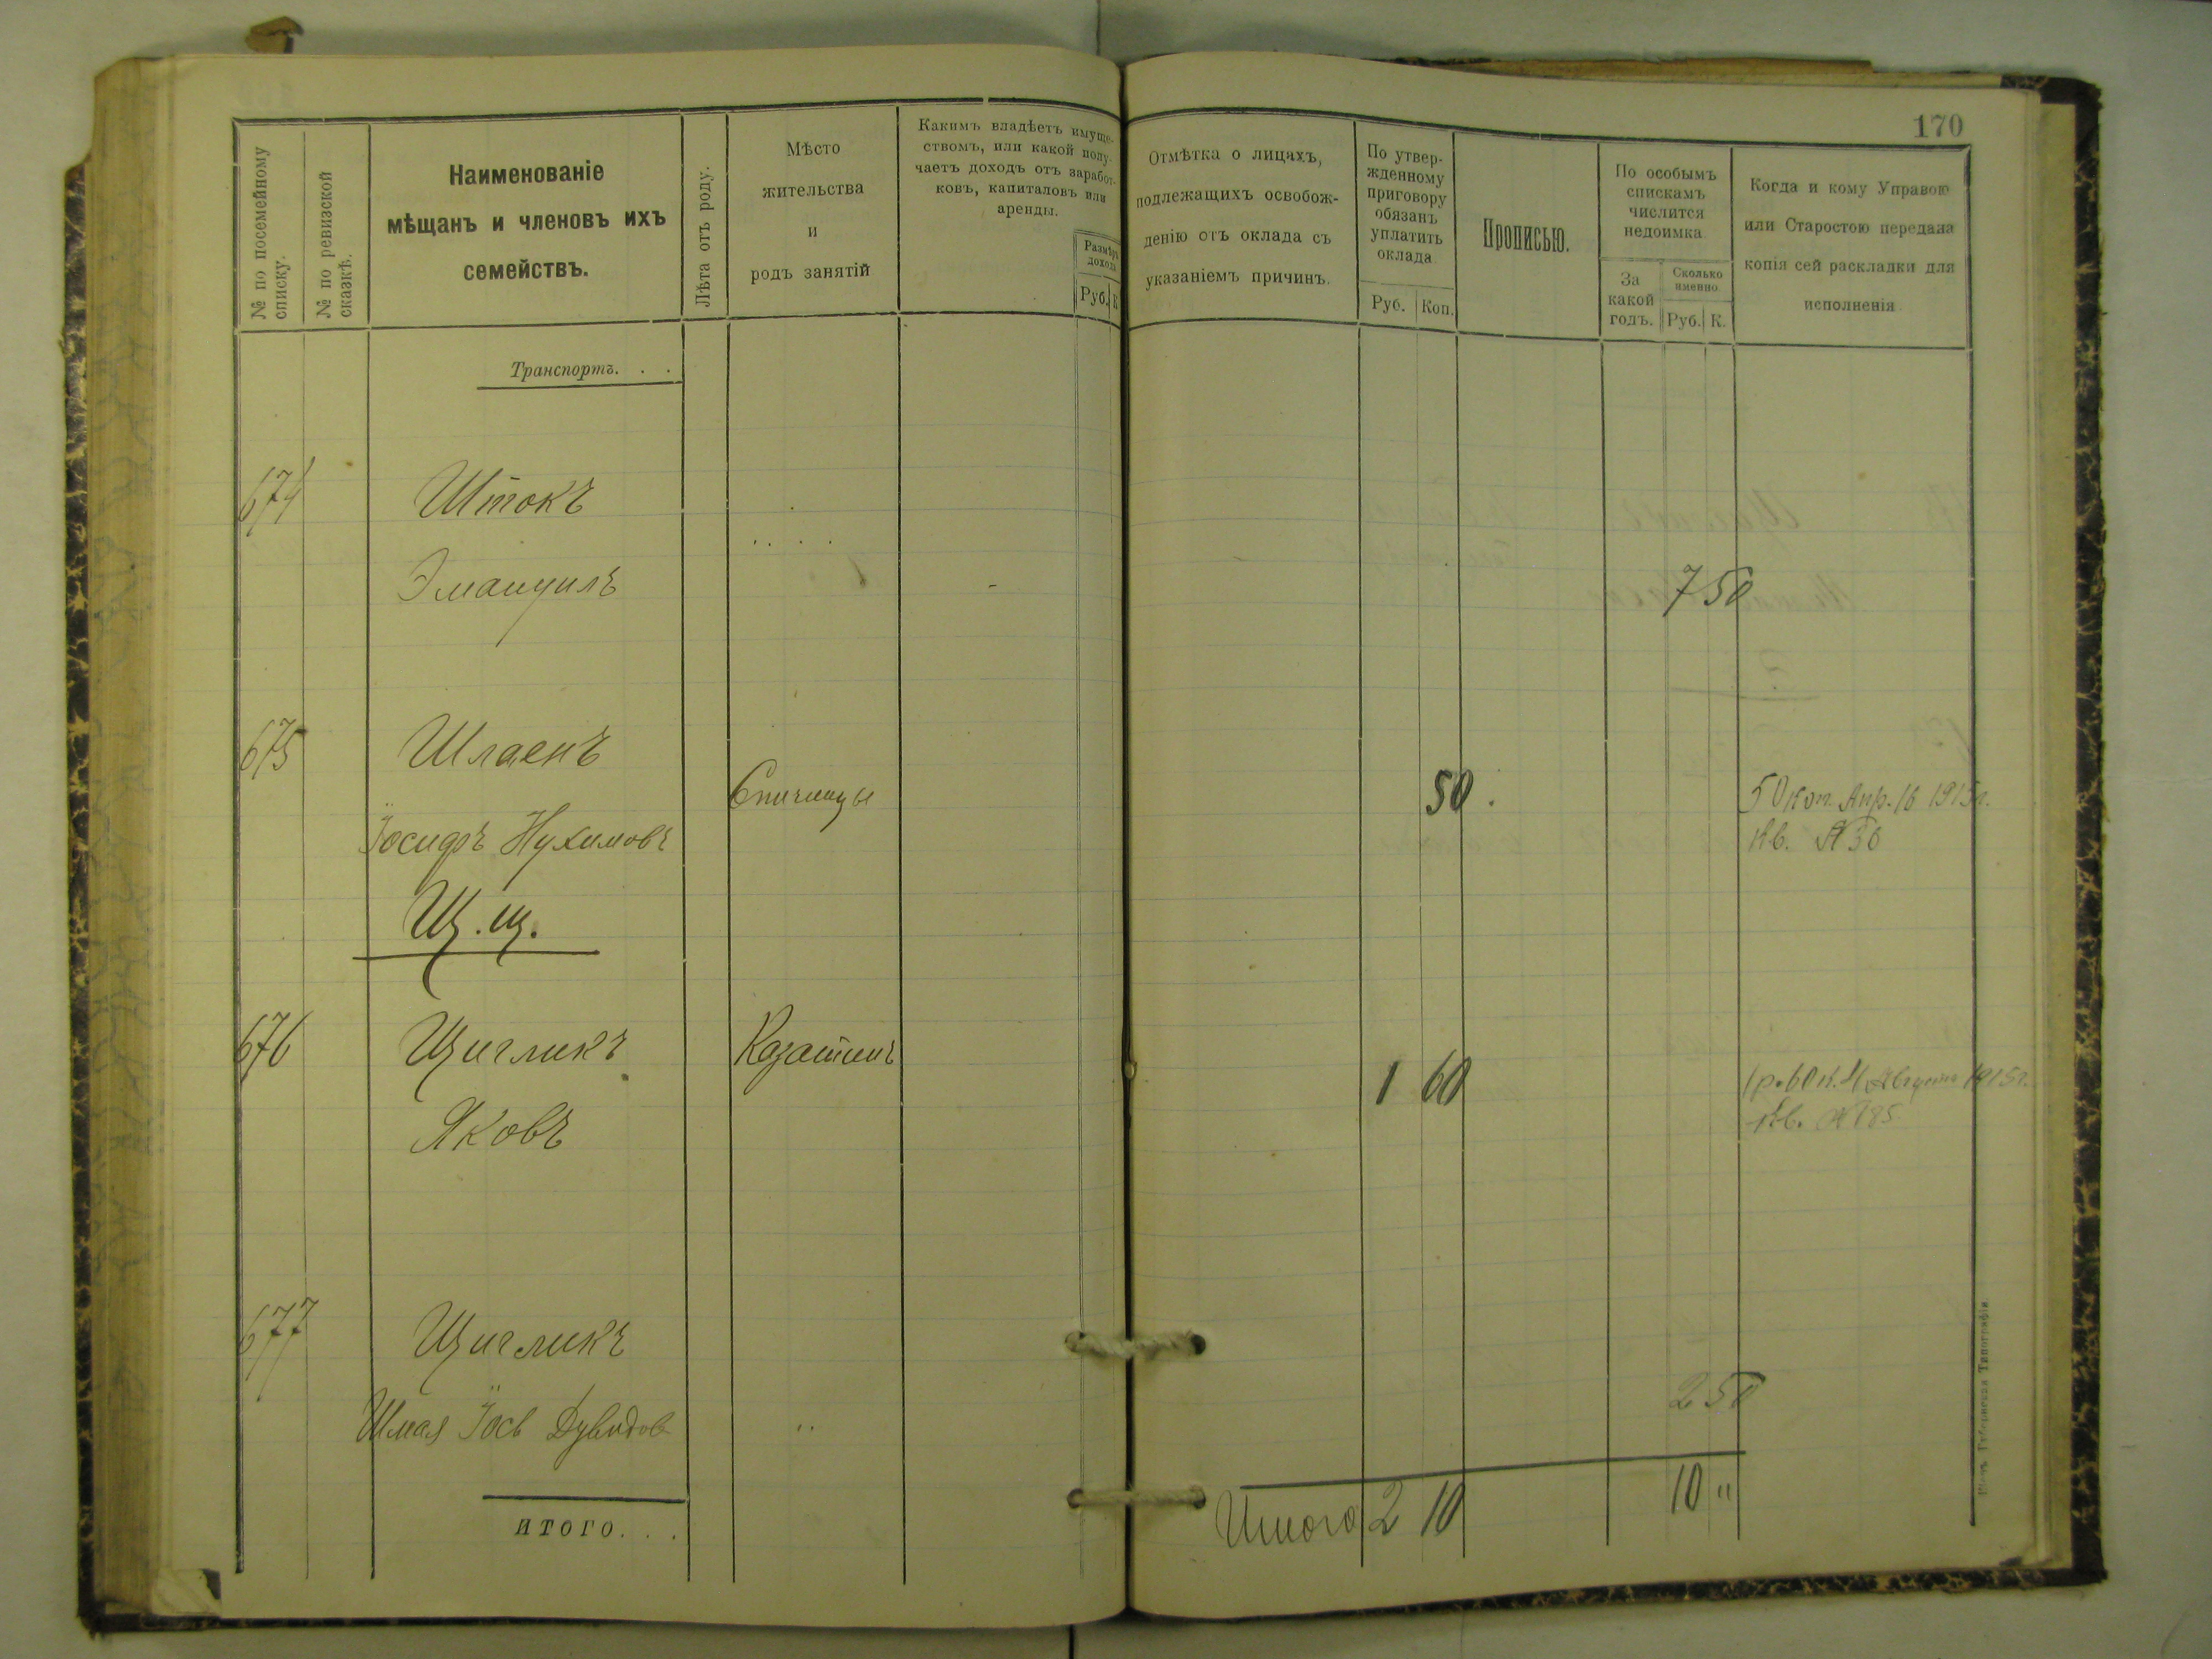 170
№ по посемейному списку.
№ по ревизской сказкѣ.
Наименованіе
мѣщанъ и членовъ ихъ
семействъ.
Лѣта отъ роду.
Мѣсто
жительства
и
родъ занятій
Какимъ владѣетъ имуще-
ствомъ, или какой полу-
чаетъ доходъ отъ заработ-
ковъ, капиталовъ или
аренды.
Размѣръ
дохода
Руб. К
Отмѣтка о лицахъ,
подлежащихъ освобож-
денію отъ оклада съ
указаніемъ причинъ.
По утвер-
жденному
приговору
обязанъ
уплатить
оклада
Руб. Коп.
Прописью.
По особымъ
спискамъ
числится
недоимка
За
какой
годъ.
Сколько
именно
Руб. К.
Когда и кому Управою
или Старостою передана
копія сей раскладки для
исполненія
Транспортъ. . .
674 Штокъ
Эмануилъ 7 50
675 Шлаенъ
Спичинцы 50. 50 коп. Апр. 16 1915 г.
Іосифъ Нухимовъ Кв. № 30
Щ.щ.
676 Щигликъ Казатинъ 1 60 1 р. 60 к. 4 Августа 1915 г.
Яковъ Кв. № 185
677 Щигликъ 2 50
Шмая Іось Дувидов
ИТОГО. . . Итого 2 10 10 "
Губернская Типографія